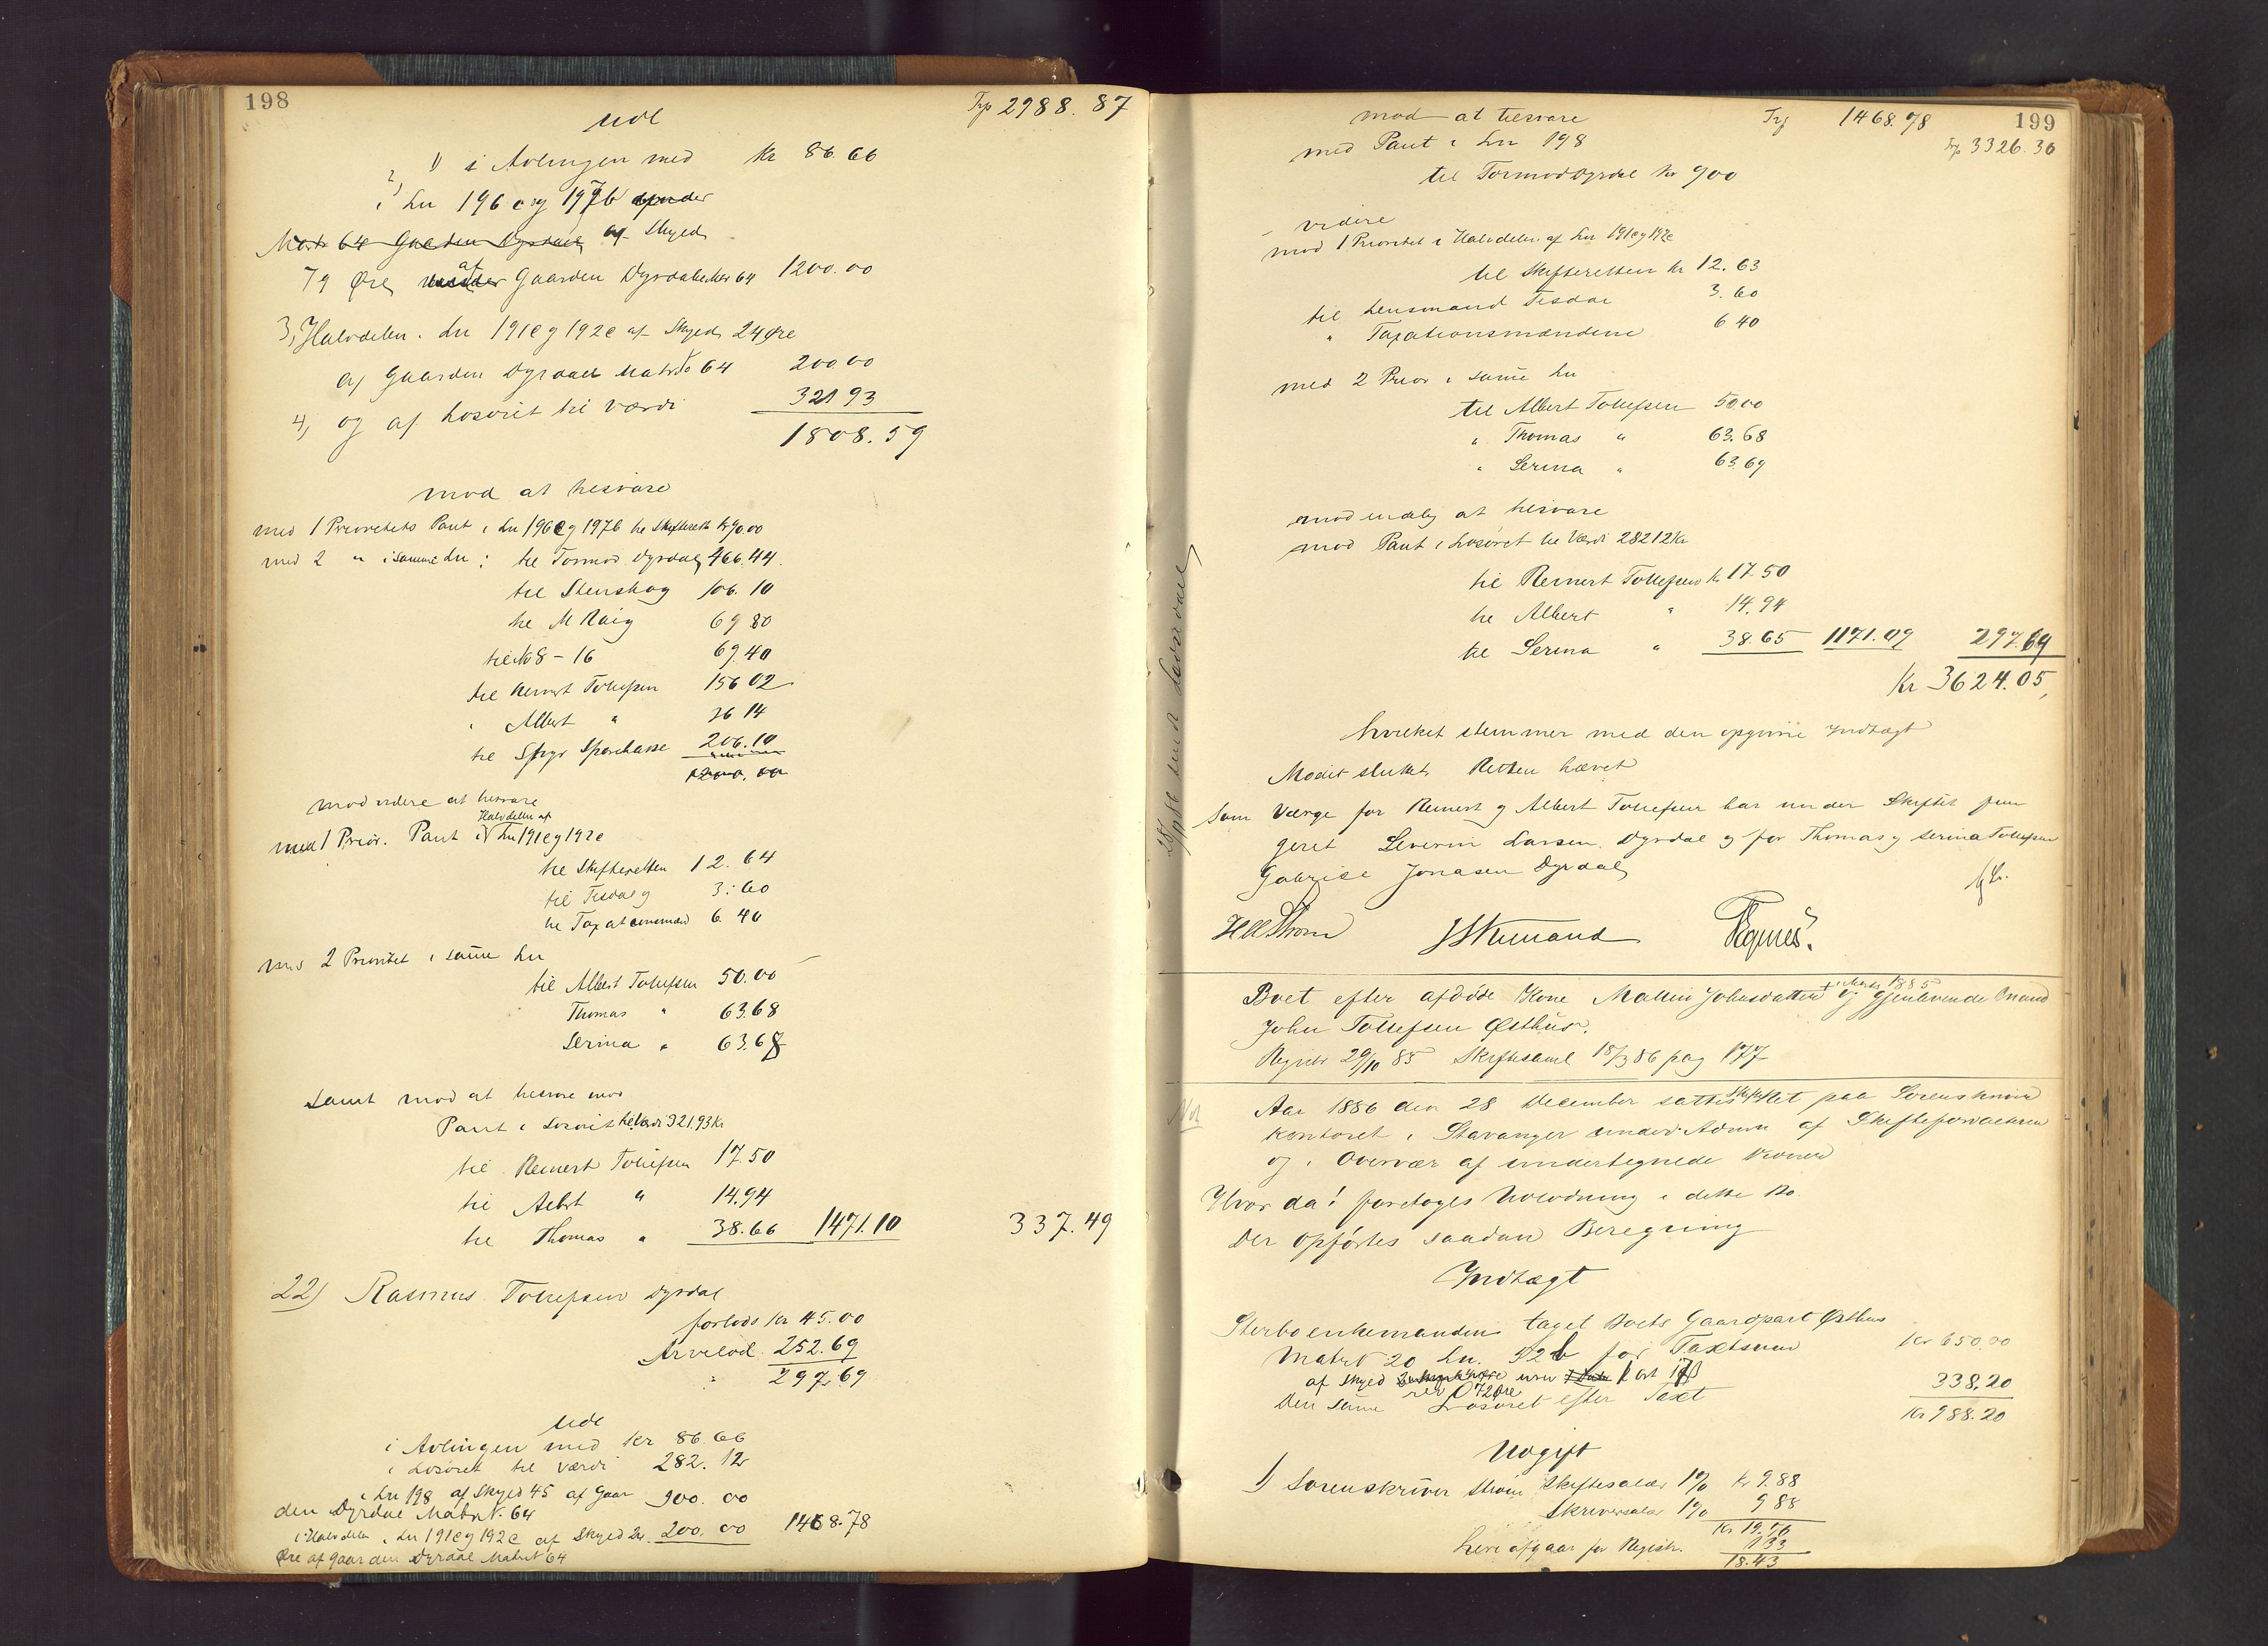 198
Trp 2988.87
Udl
1) i Avlingen med Kr 86.66
2) i Lnr 196 c og 197 b
Matr 64 Gaarden Dyrdal af Skyld
79 Øre af Gaarden Dyrdal Matr 64 1200.00
3, Halvdelen i Lnr 191 c og 192 c af Skyld 24 Øre
af Gaarden Dyrdal Matr No 64 200.00
4, og af Løsøret til Værdi 321 93
1808.59
mod at tilsvare
med 1 Prioritets Pant i Lnr 196 c og 197 b til Skifteretten Kr 90.00
med 2 " i samme Lnr: til Tormod Dyrdal 466.44
til Stenskog 106.10
til M Raig 69 80
til No 8-16 69.40
til Reinert Tollefsen 156 02
" Albert " 36 14
til Sparekasse 206.10
1200.00
mod videre at tilsvare
med 1 Prior. Pant i Halvdelen af Lnr 191 c og 192 c
til Skifteretten 12.64
til Tisdal 3.60
til Taxationsmænd 6.40
med 2 Prioritet i samme Lnr
til Albert Tollefsen 50.00
Thomas " 63.68
Serina " 63.68
samt mod at tilsvare mod
Pant i Løsøret til Værdi 321.93 Kr
til Reinert Tollefsen 17.50
til Albert " 14.94
til Thomas " 38.66 1471.10 337.49
22) Rasmus Tollefsen Dyrdal
forlods Kr 45.00
Arvelod 252.69
297.69
Udl
i Avlingen med Kr 86.66
i Løsøret til Værdi 282.12
i Lnr 198 af Skyld 45 af Gaar
den Dyrdal Matr N. 64 900.00
i Halvdelen i Lnr 191 c og 192 c af Skyld 24 200.00 1468.78
Øre af Gaarden Dyrdal Matr N 64
199
mod at tilsvare Trp 1468.78
Trp 3326.36
med Pant i Lnr 198
til Tormod Dyrdal Kr 900
videre
mod 1 Prioritet i Halvdelen af Lnr 191 c og 192 c
til Skifteretten Kr 12.63
til Lensmand Tisdal 3.60
" Taxationsmændene 6.40
med 2 Prior i samme Lnr
til Albert Tollefsen 50.00
" Thomas " 63.68
" Serina " 63.69
mod endelig at tilsvare
mod Pant i Løsøret til Værdi 282.12 Kr
til Reinert Tollefsen Kr 17.50
til Albert " 14.94
til Serina " 38.65 1171.09 297.69
Kr 3624.05,
hvilket stemmer med den opgivne Indtægt
Modet sluttet Retten hævet
Som Værge for Reinert og Albert Tollefsen har under Skiftet fun
geret Severin Larsen Dyrdal og for Thomas og Serina Tollefsen
Gabriel Jonasen Dyrdal
Boet efter afdøde Kone Mallin Johnsdatter og gjenlevende Mand
John Tollefsen Østhus.
Registr 29/10 85 Skiftesaml 18/3 86 pag 177
Aar 1886 den 28 December sattes Skifteret paa Sorenskriver
kontoret i Stavanger under Adm. af Skifteforvalteren
og i Overvær af undertegnede Vidner
Hvor da! foretoges Udlodning i dette Bo.
Der opførtes saadan Beregning
Indtægt
Sterboenkemanden taget Boets Gaardpart Østhus
Matr N 20 Lnr. 92 b for Taxtsum Kr 650.00
af Skyld
Den samme Løsøret efter Taxt 338.20
Kr 988.20
Udgift
1) Sorenskriver Strøm Skiftesalær 1% Kr 9.88
Skriversalær 1% 9 88
Kr 19.76
heri afgaar for Registr. 1.33
18.43